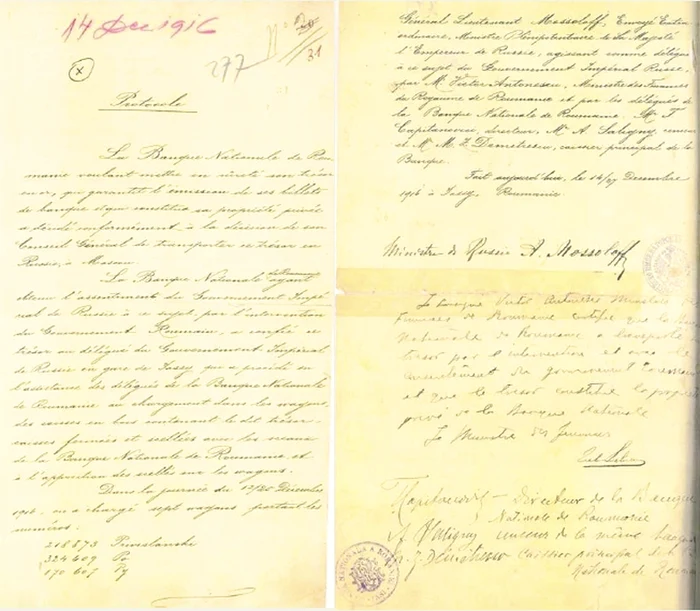 14 Dec 1916
277
31
(x)
Protocole
La Banque Nationale de Rou-
manie voulant mettre en sûreté son trésor
en or, qui garantit l'émission de ses billets
de banque et qui constitue sa propriété privée
a décidé conformément à la décision de son
Conseil Général de transporter ce trésor en
Russie, à Moscou.
La Banque Nationale de Roumanie ayant
obtenu l'assentiment du Gouvernement Impé-
rial de Russie à ce sujet, par l'intervention
du Gouvernement Roumain, a confié ce
trésor au délégué du Gouvernement Impérial
de Russie en gare de Jassy, qui a présidé en
l'assistance des délégués de la Banque Nationale
de Roumanie au chargement dans les wagons,
des caisses en bois contenant le dit trésor,
caisses fermées et scellées avec les sceaux
de la Banque Nationale de Roumanie, et
à l'apposition des scellés sur les wagons.
Dans la journée du Décembre
1916, on a chargé sept wagons portant les
numéros:
218873
324609
170 607
Général Lieutenant Mossoloff, Envoyé Extra-
ordinaire, Ministre Plénipotentiaire de Sa Majesté
l'Empereur de Russie, agissant comme délégué
à ce sujet du Gouvernement Impérial Russe,
par M. Victor Antonescu, Ministre des Finances
du Royaume de Roumanie et par les délégués de
la Banque Nationale de Roumanie: Mr T.
Capitanovici, directeur, Mr A. Saligny, censeur
et Mr M. Z. Demetrescu, caissier principal de la
Banque.
Fait aujourd'hui, le 14/27 Décembre
1916 à Jassy, Roumanie.
Ministre de Russie A. Mossoloff
Victor Antonescu Ministre des
Finances de Roumanie certifie que la
Nationale de Roumanie a transporté
trésor par l'intervention et avec le
consentement du gouvernement roumain
et que le trésor constitue la propriété
privée de la Banque Nationale
Le Ministre des Finances
Directeur de la Banque
Nationale de Roumanie
A. Saligny censeur de la même banque
caissier principal de la
Nationale de Roumanie